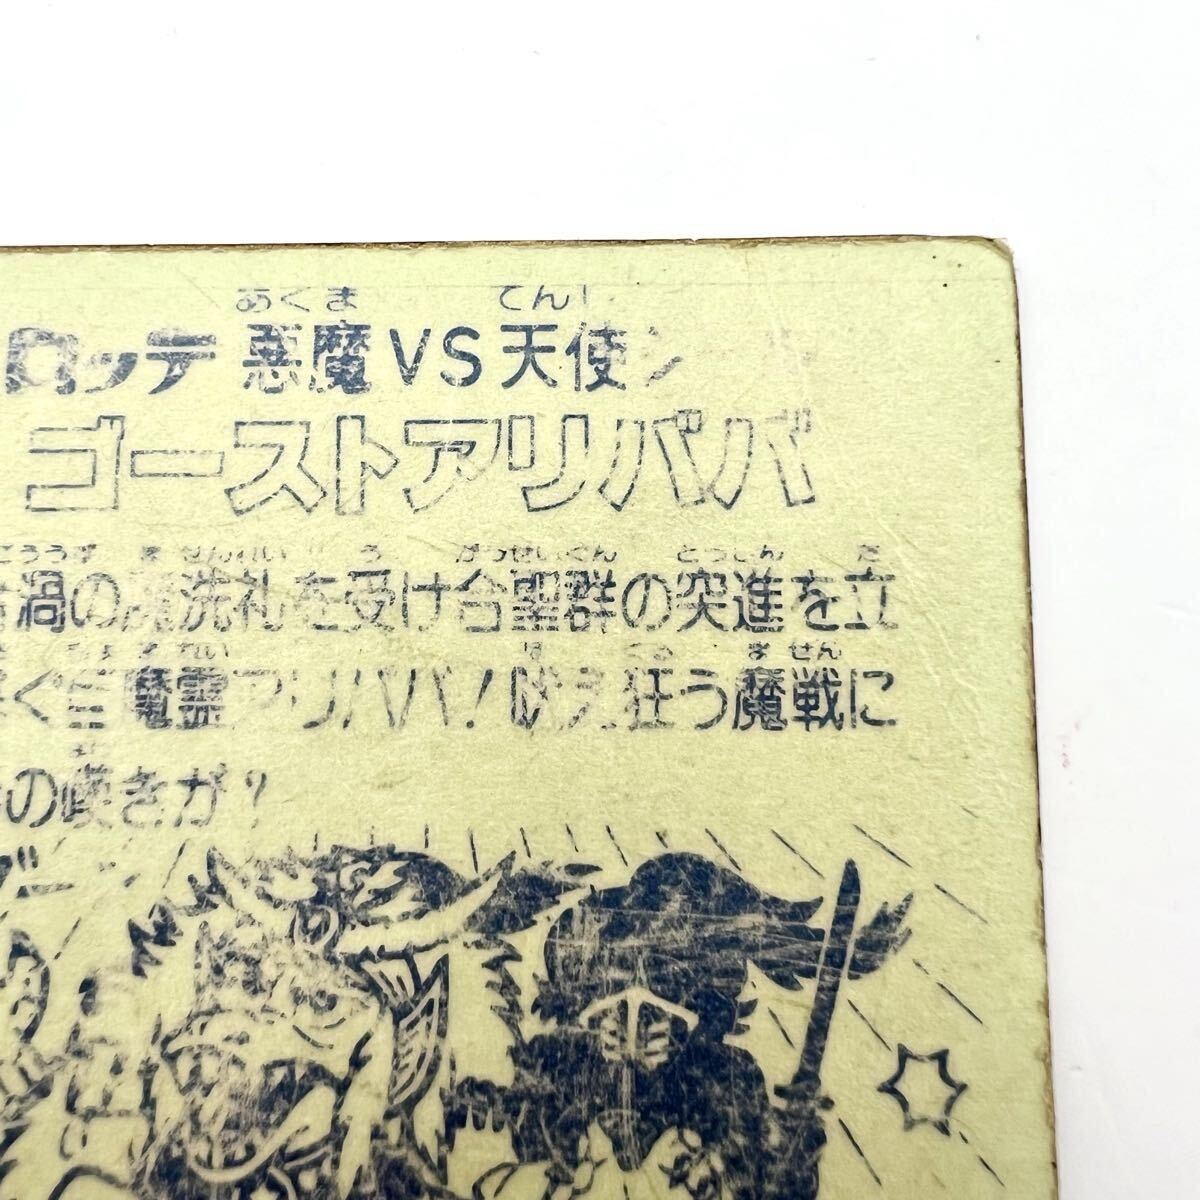 あくま てん
ロッテ 悪魔VS天使シ
ゴーストアリババ
渦の魔洗礼を受け合聖群の突進を立
ぐ 魔霊アリババ!吠え狂う魔戦に
の嘆きが?